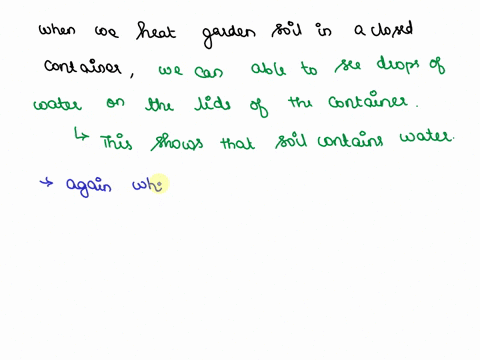 when we heat garden soil in a closed
container, we can able to see drops of
water on the lids of the container.
↳ This shows that soil contains water.
→ again whi